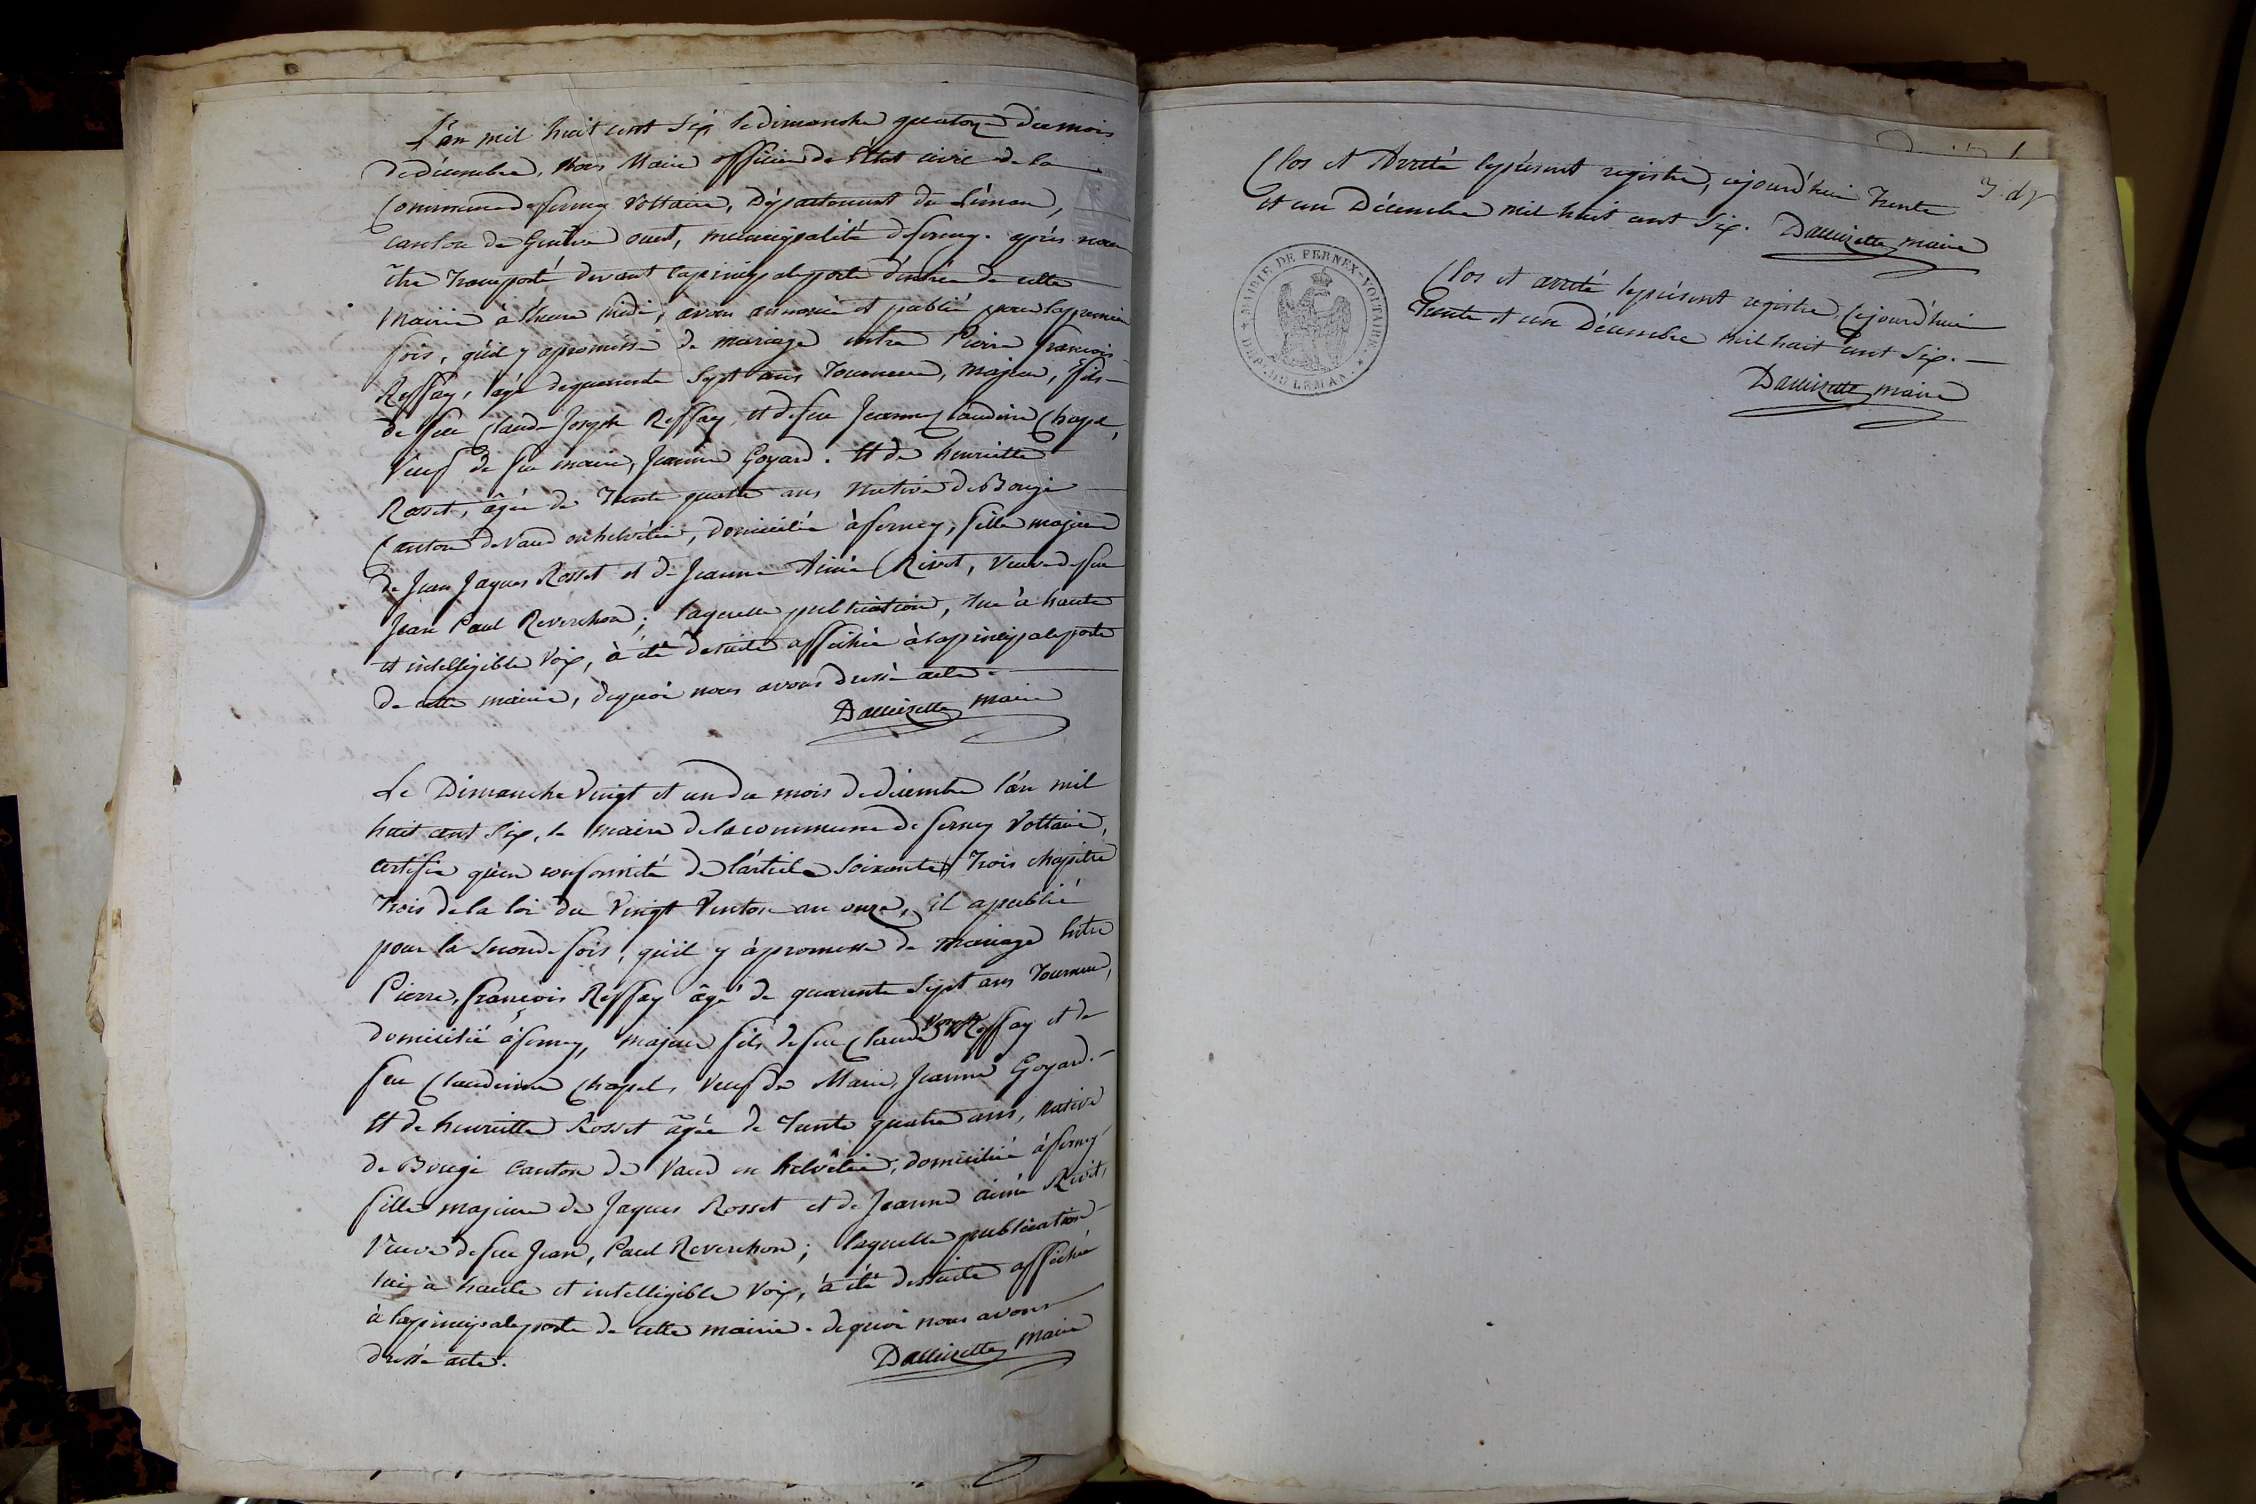 L'an mil huit cent Six le dimanche quatorze du mois
de décembre, Nous Maire officier de l'Etat civil de la
Commune de ferney Voltaire, Département du Léman,
canton de Genêve ouest, municipalité de ferney. après nous
être Transporté devant la principale porte d'entrée de cette
Mairie à l'heure midi, avons annoncé et publié pour la premiere
fois, qu'il y a promesse de mariage entre Pierre françois
Reffay, âgé de quarante Sept ans Tourneur, Majeur, fils
de feu Claude Joseph Reffay, et de feue Jeanne Claudine Chapel,
Veuf de feu marie, Jeanne Goyard. Et de henriette
Rosset, âgée de Trente quatre ans Native de Bougi
Canton de Vaud en helvétie, domiciliée à ferney, fille majeure
de Jean Jaques Rosset et de Jeanne Aimée Rivet, Veuve de feu
Jean Paul Reverchon; laquelle publication, lue à haute
et intelligible Voix, à été de suite affichée à la principale porte
de cette mairie, de quoi nous avons dressé acte.
Dallizette maire
Le Dimanche Vingt et un du mois de décembre l'an mil
huit cent Six, le maire de la commune de ferney Voltaire,
certifie qu'en conformité de l'article Soixante Trois chapitre
Trois de la loi du Vingt Ventose an onze, il a publié
pour la Seconde fois, qu'il y à promesse de mariage Entre
Pierre, françois Reffay âgé de quarante Sept ans Tourneur,
domicilié à ferney, majeur fils de feu Claude Reffay et de
feu Claudine Chapel, Veuf de Marie, Jeanne Goyard.
Et de henriette Rosset âgée de Trente quatre ans, Native
de Bougi canton de Vaud en helvétie, domiciliée à ferney
fille majeure de Jaques Rosset et de Jeanne aimé Rivet,
Veuve de feu Jean, Paul Reverchon; laquelle publication
lue à haute et intelligible Voix, à été de suite affichée
à la principale porte de cette mairie. de quoi nous avons
dressé acte.
Dallizette maire
Clos et Arrêté le présent registre, cejourd'hui Trente
et un Décembre mil huit cent Six. Dallizette maire
MAIRIE DE FERNEX-VOLTAIRE. DEP. DU LEMAN.
Clos et arrêté le présent registre, Cejourd'hui
Trente et un Décembre mil huit cent Six.
Dallizette maire